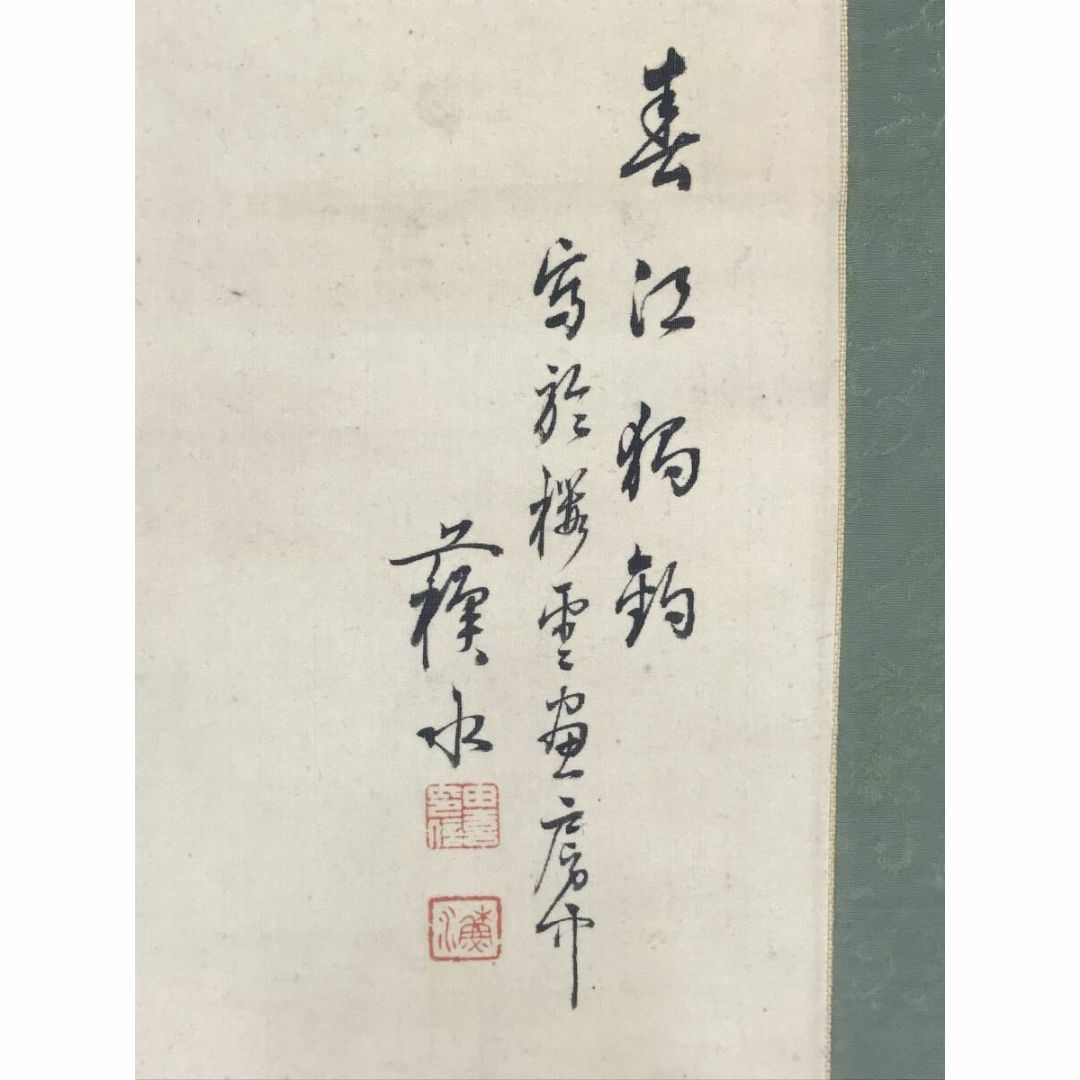 春江獨釣
寫於樱雲畫房中
蘋水